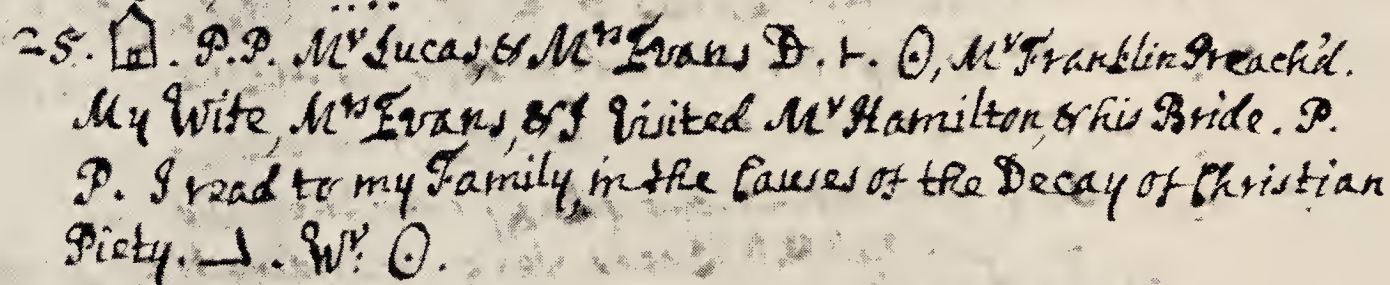 25. . P.P. Mr Lucas, & Mrs Evans D. t. ʘ, Mr Franklin Preach'd.
My Wife, Mrs Evans, & I Visited Mr Hamilton, & his Bride. P.
P. I read to my Family, in the Causes of the Decay of Christian
Piety. ⅃. Wr. ʘ.